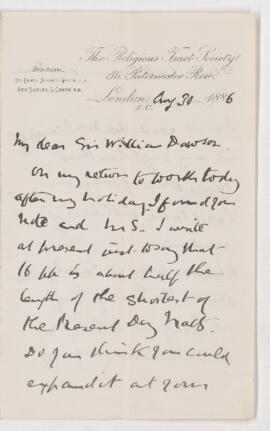 The Religious Tract Society
56, Paternoster Row,
London, Aug 30 1886
E.C.
My dear Sir William Dawson.
On my return to work today
after my holiday, I found your
note and MS. I write
at present just to say that
16 pp is about half the
length of the shortest of
the Present Day Tracts.
Do you think you could
expand it at your